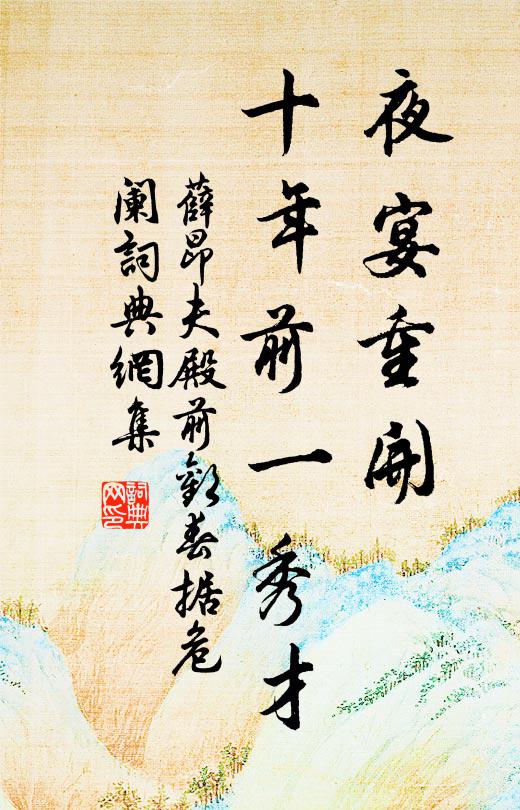 夜宴重開
十年前一秀才
薛昂夫殿前歡春据危
闌詞典網集
詞典
网印